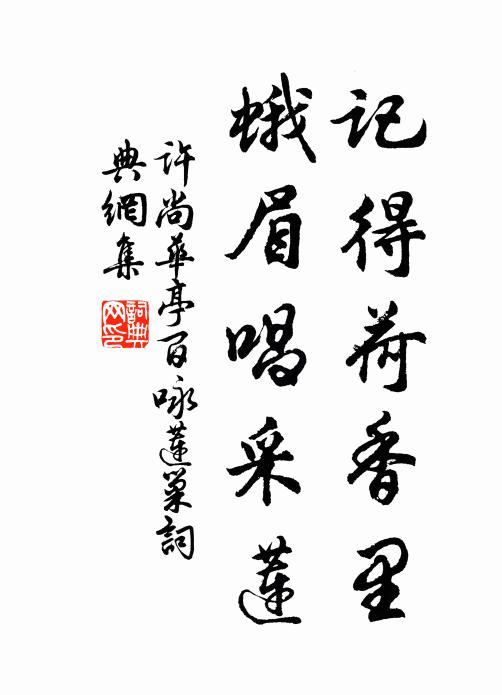 记得荷香里
蛾眉唱采莲
许尚华亭百咏莲巢词
典網集
詞典
网印